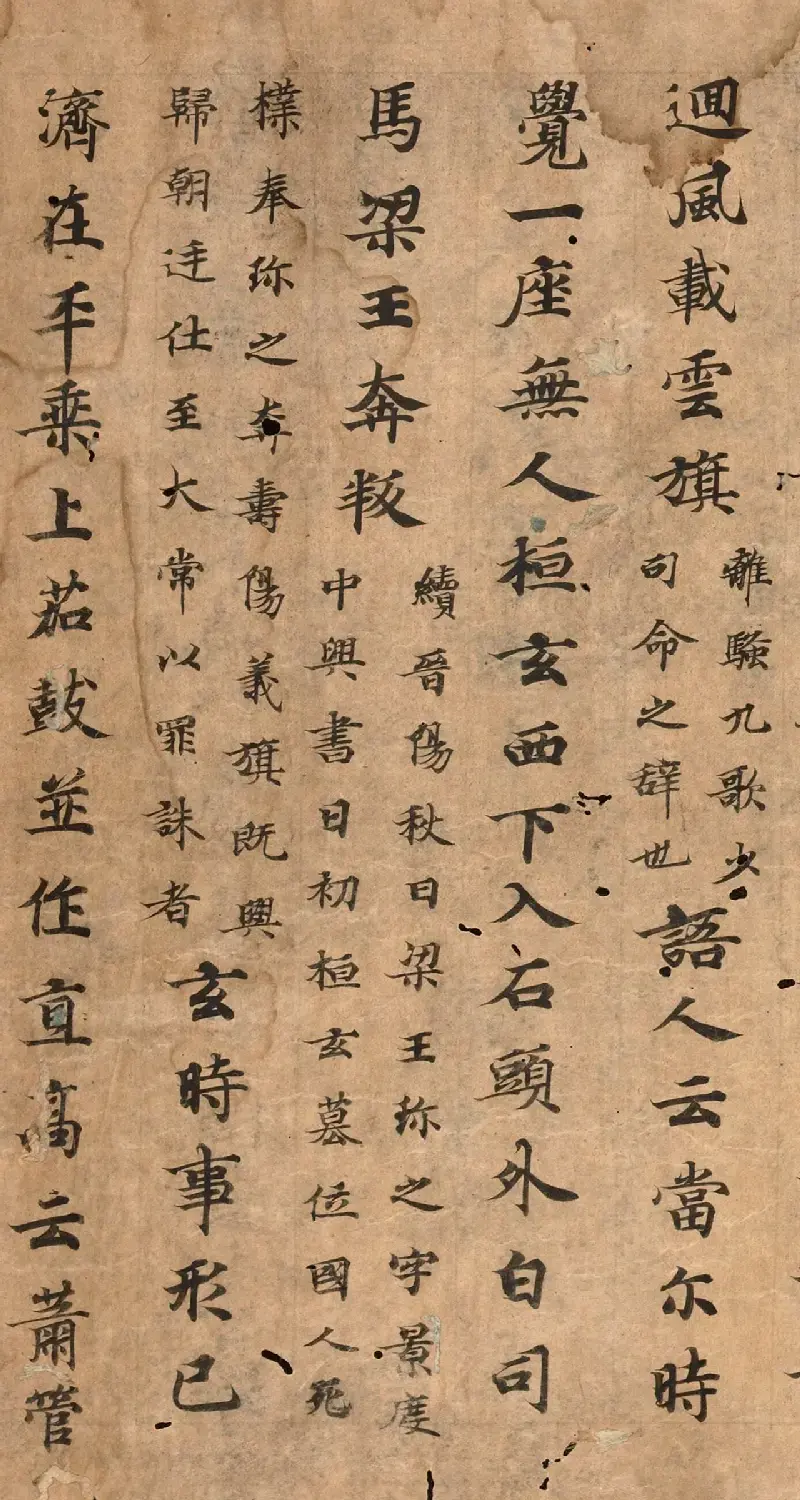 迴風載雲旗
離騷九歌少
司命之辞也
語人云當尓時
覺一座無人桓玄西下入石頭外白司
馬梁王奔叛
續晉陽秋曰梁王珎之字景度
中興書曰初桓玄墓位國人孔
樸奉珎之奔壽陽義旗既興
歸朝廷仕至大常以罪誅者
玄時事形已
濟在平乗上茄鼓並作直髙云蕭管